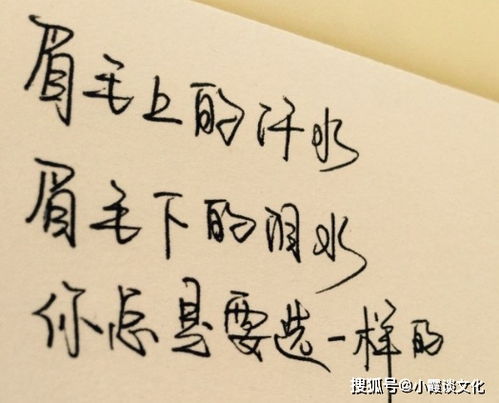 眉毛上的汗水
眉毛下的泪水
你总是要选一样的
搜狐号@小霞谈文化